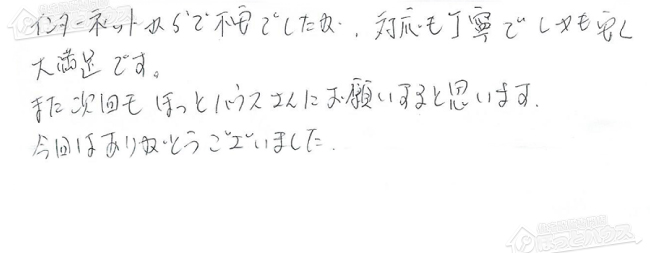 インターネットからで不安でしたが、対応も丁寧でしかも安く
大満足です。
また次回もほっとハウスさんにお願いすると思います.
今回はありがとうございました.
ほっとハウス